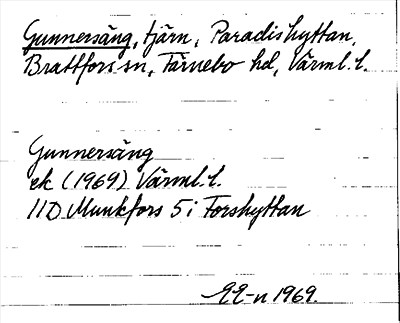 Gunnersäng, tjärn, Paradishyttan,
Brattfors sn, Färnebo hd, Värml. l.
Gunnersäng
ek (1969) Värml. l.
11D Munkfors 5 i Forshyttan
1969.